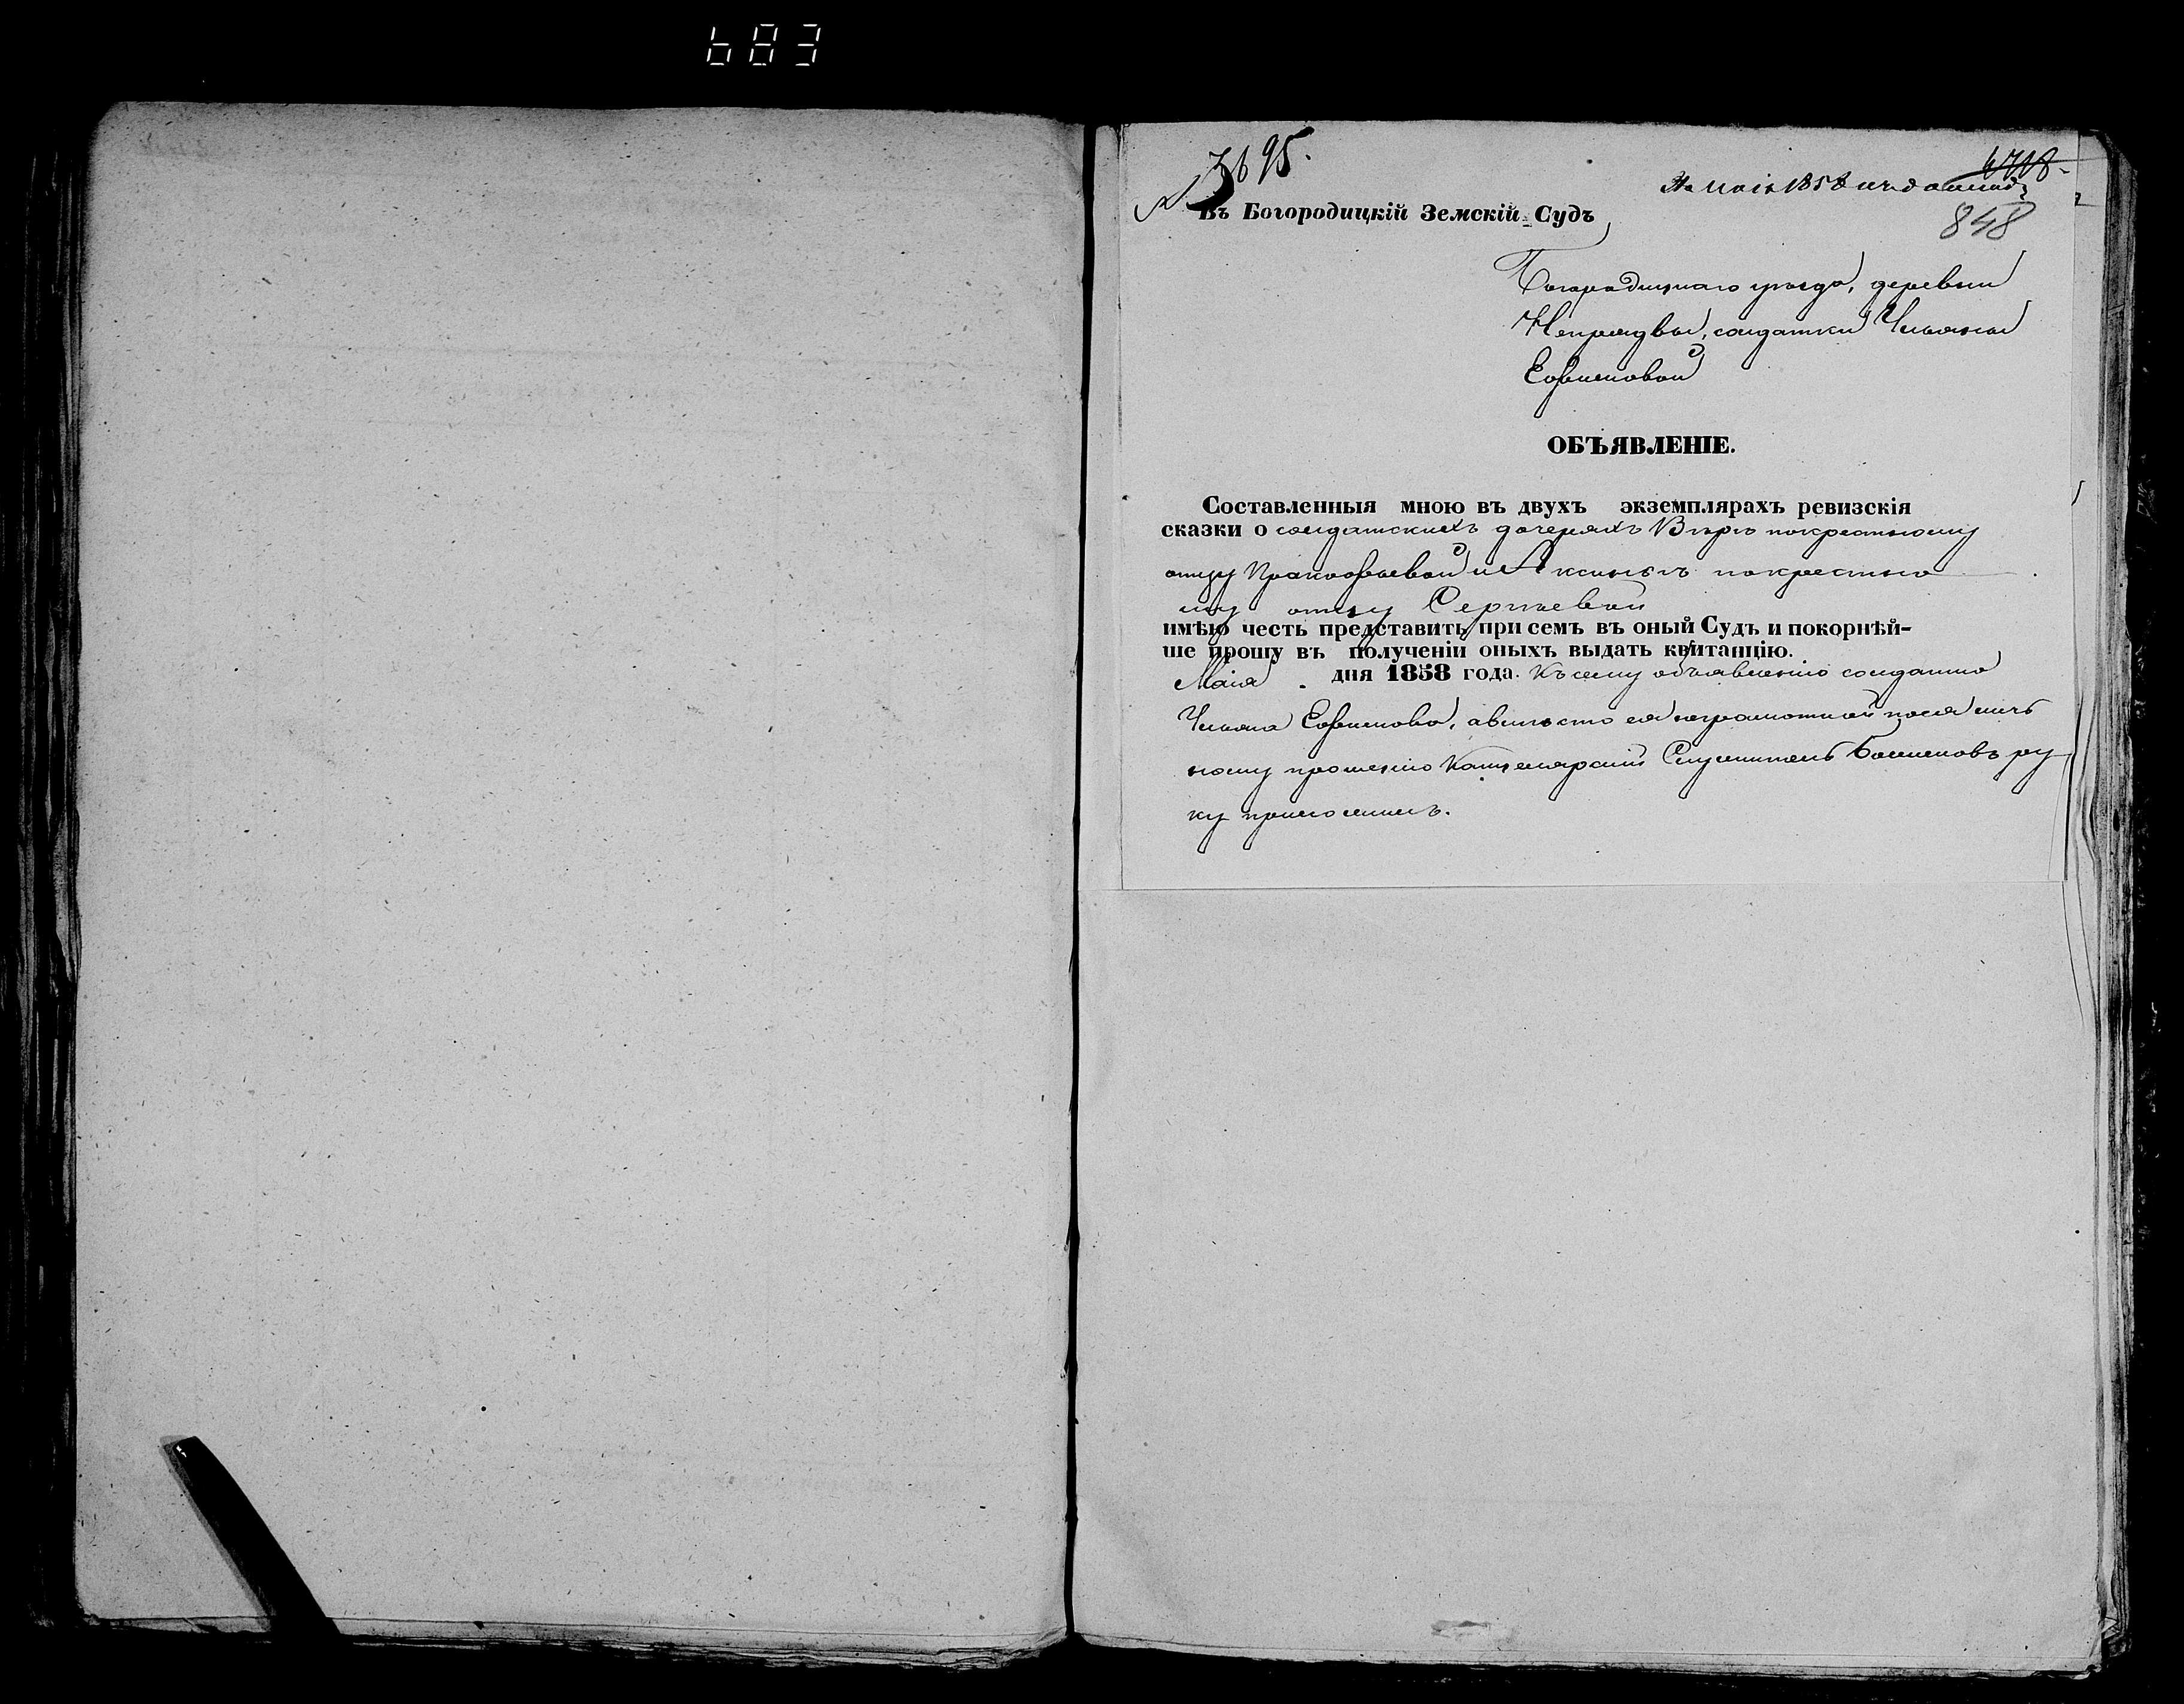 683
№ 3695.
4718.
Маія 1858
848
Въ Богородицкій Земскій Судъ
Богородицкаго уѣзда, деревни
Непрядвы, солдатки Ульяны
Ефимовой
ОБЪЯВЛЕНІЕ.
Составленныя мною въ двухъ экземплярахъ ревизскія
сказки о солдатскихъ дочеряхъ Вѣрѣ покрестному
отцу Прокофьевой и Аксиньѣ покрестно
му отцу Сергѣевой
имѣю честь представить при семъ въ оный Судъ и покорнѣй-
ше прошу въ полученіи оныхъ выдать квитанцію.
Маія дня 1858 года. Къ сему объявленію солдатка
Ульяна Ефимова, авмѣсто ея неграмотной поея лич
ному прошенію Канцелярскій Служитель руку
приложилъ.